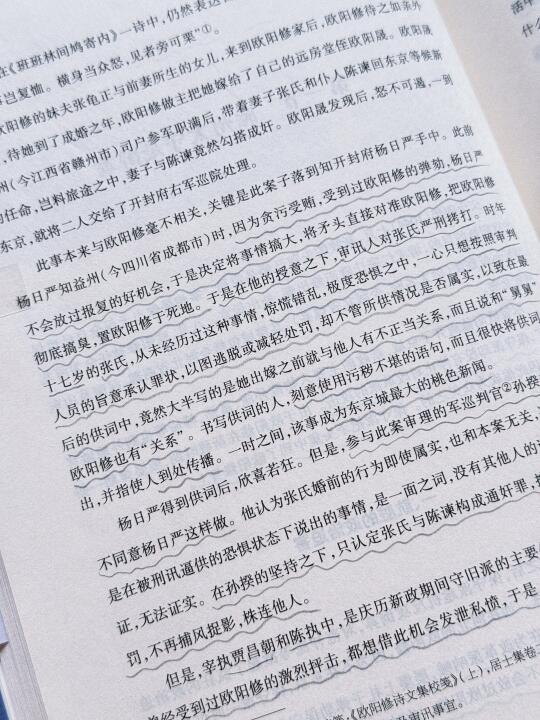 ，仍然表达
在《班班林间鸠寄内》一诗中
事岂复恤。横身当众怒，见者旁可栗”①。
欧阳修的妹夫张龟正与前妻所生的女儿，来到欧阳修家后，欧阳修待之如亲外
，待她到了成婚之年，欧阳修做主把她嫁给了自己的远房堂侄欧阳晟。欧阳晟
州（今江西省赣州市）司户参军职满后，带着妻子张氏和仆人陈谏回东京等候新
的任命，岂料旅途之中，妻子与陈谏竟然勾搭成奸。欧阳晟发现后，怒不可遏，一到
东京，就将二人交给了开封府右军巡院处理。
此事本来与欧阳修毫不相关，关键是此案子落到知开封府杨日严手中。此前
杨日严知益州（今四川省成都市）时，因为贪污受贿，受到过欧阳修的弹劾，杨日严
不会放过报复的好机会，于是决定将事情搞大，将矛头直接对准欧阳修，把欧阳修
彻底搞臭，置欧阳修于死地。于是在他的授意之下，审讯人对张氏严刑拷打。时年
十七岁的张氏，从未经历过这种事情，惊慌错乱，极度恐惧之中，一心只想按照审判
人员的旨意承认罪状，以图逃脱或减轻处罚，却不管所供情况是否属实，以致在最
后的供词中，竟然大半写的是她出嫁之前就与他人有不正当关系，而且说和“舅舅”
欧阳修也有“关系”。书写供词的人，刻意使用污秽不堪的语句，而且很快将供词
出，并指使人到处传播。一时之间，该事成为东京城最大的桃色新闻。
杨日严得到供词后，欣喜若狂。但是，参与此案审理的军巡判官②孙揆
不同意杨日严这样做。他认为张氏婚前的行为即使属实，也和本案无关，
是在被刑讯逼供的恐惧状态下说出的事情，是一面之词，没有其他人的
证，无法证实。在孙揆的坚持之下，只认定张氏与陈谏构成通奸罪，
罚，不再捕风捉影，株连他人。
但是，宰执贾昌朝和陈执中，是庆历新政期间守旧派的主要
曾经受到过欧阳修的激烈抨击，都想借此机会发泄私愤，于是
《欧阳修诗文集校笺》（上），居士集卷二
审讯事宜。
活中
什么